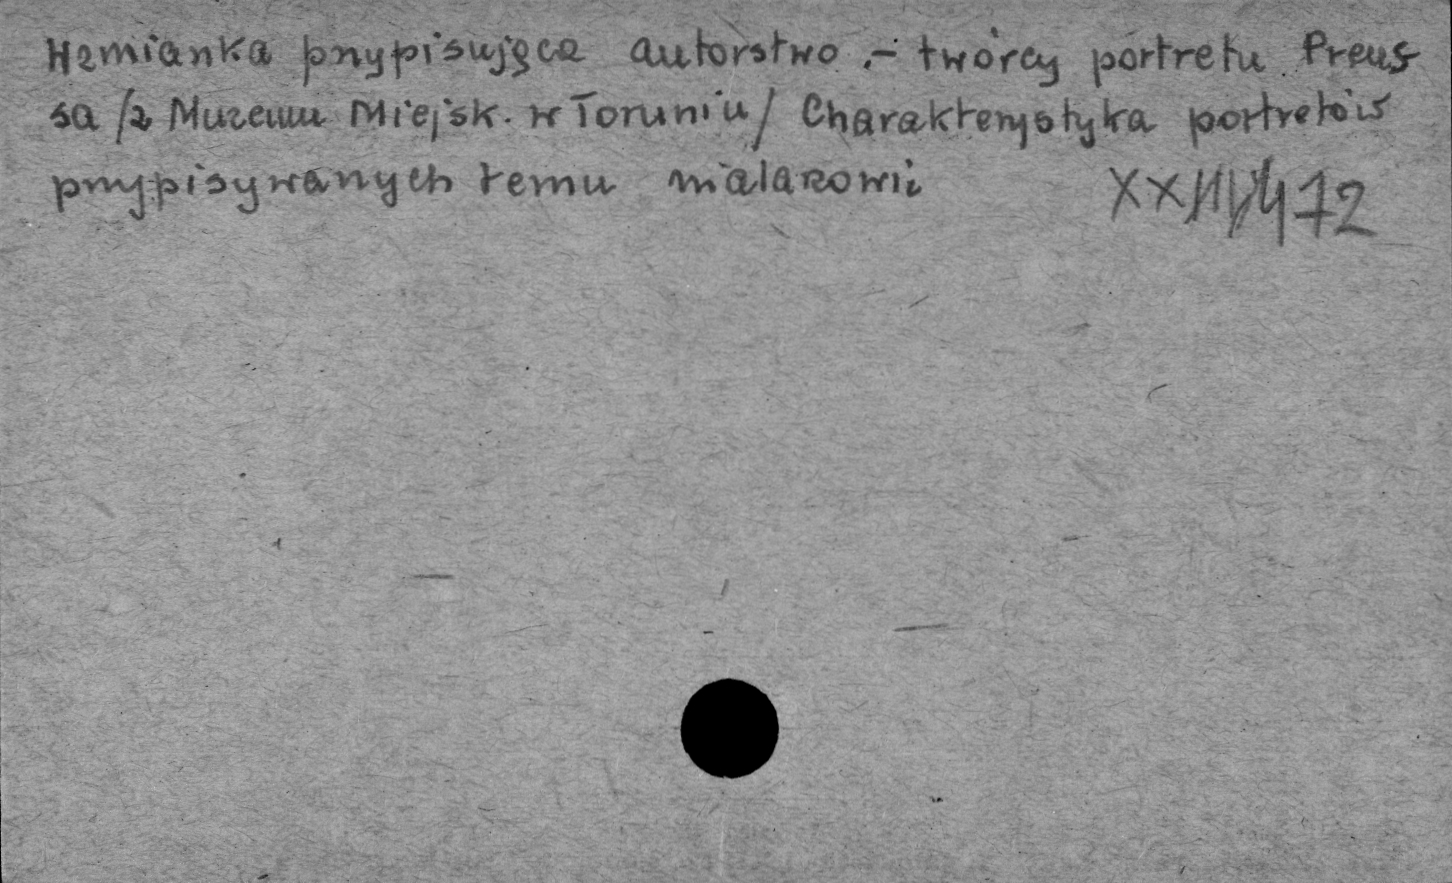 Wzmianka przypisująca autorstwo .- twórcy portretu Preus
sa /z Muzeum Miejsk. w Toruniu/ Charakterystyka portretów
przypisywanych temu malarzowi
XXIII/472